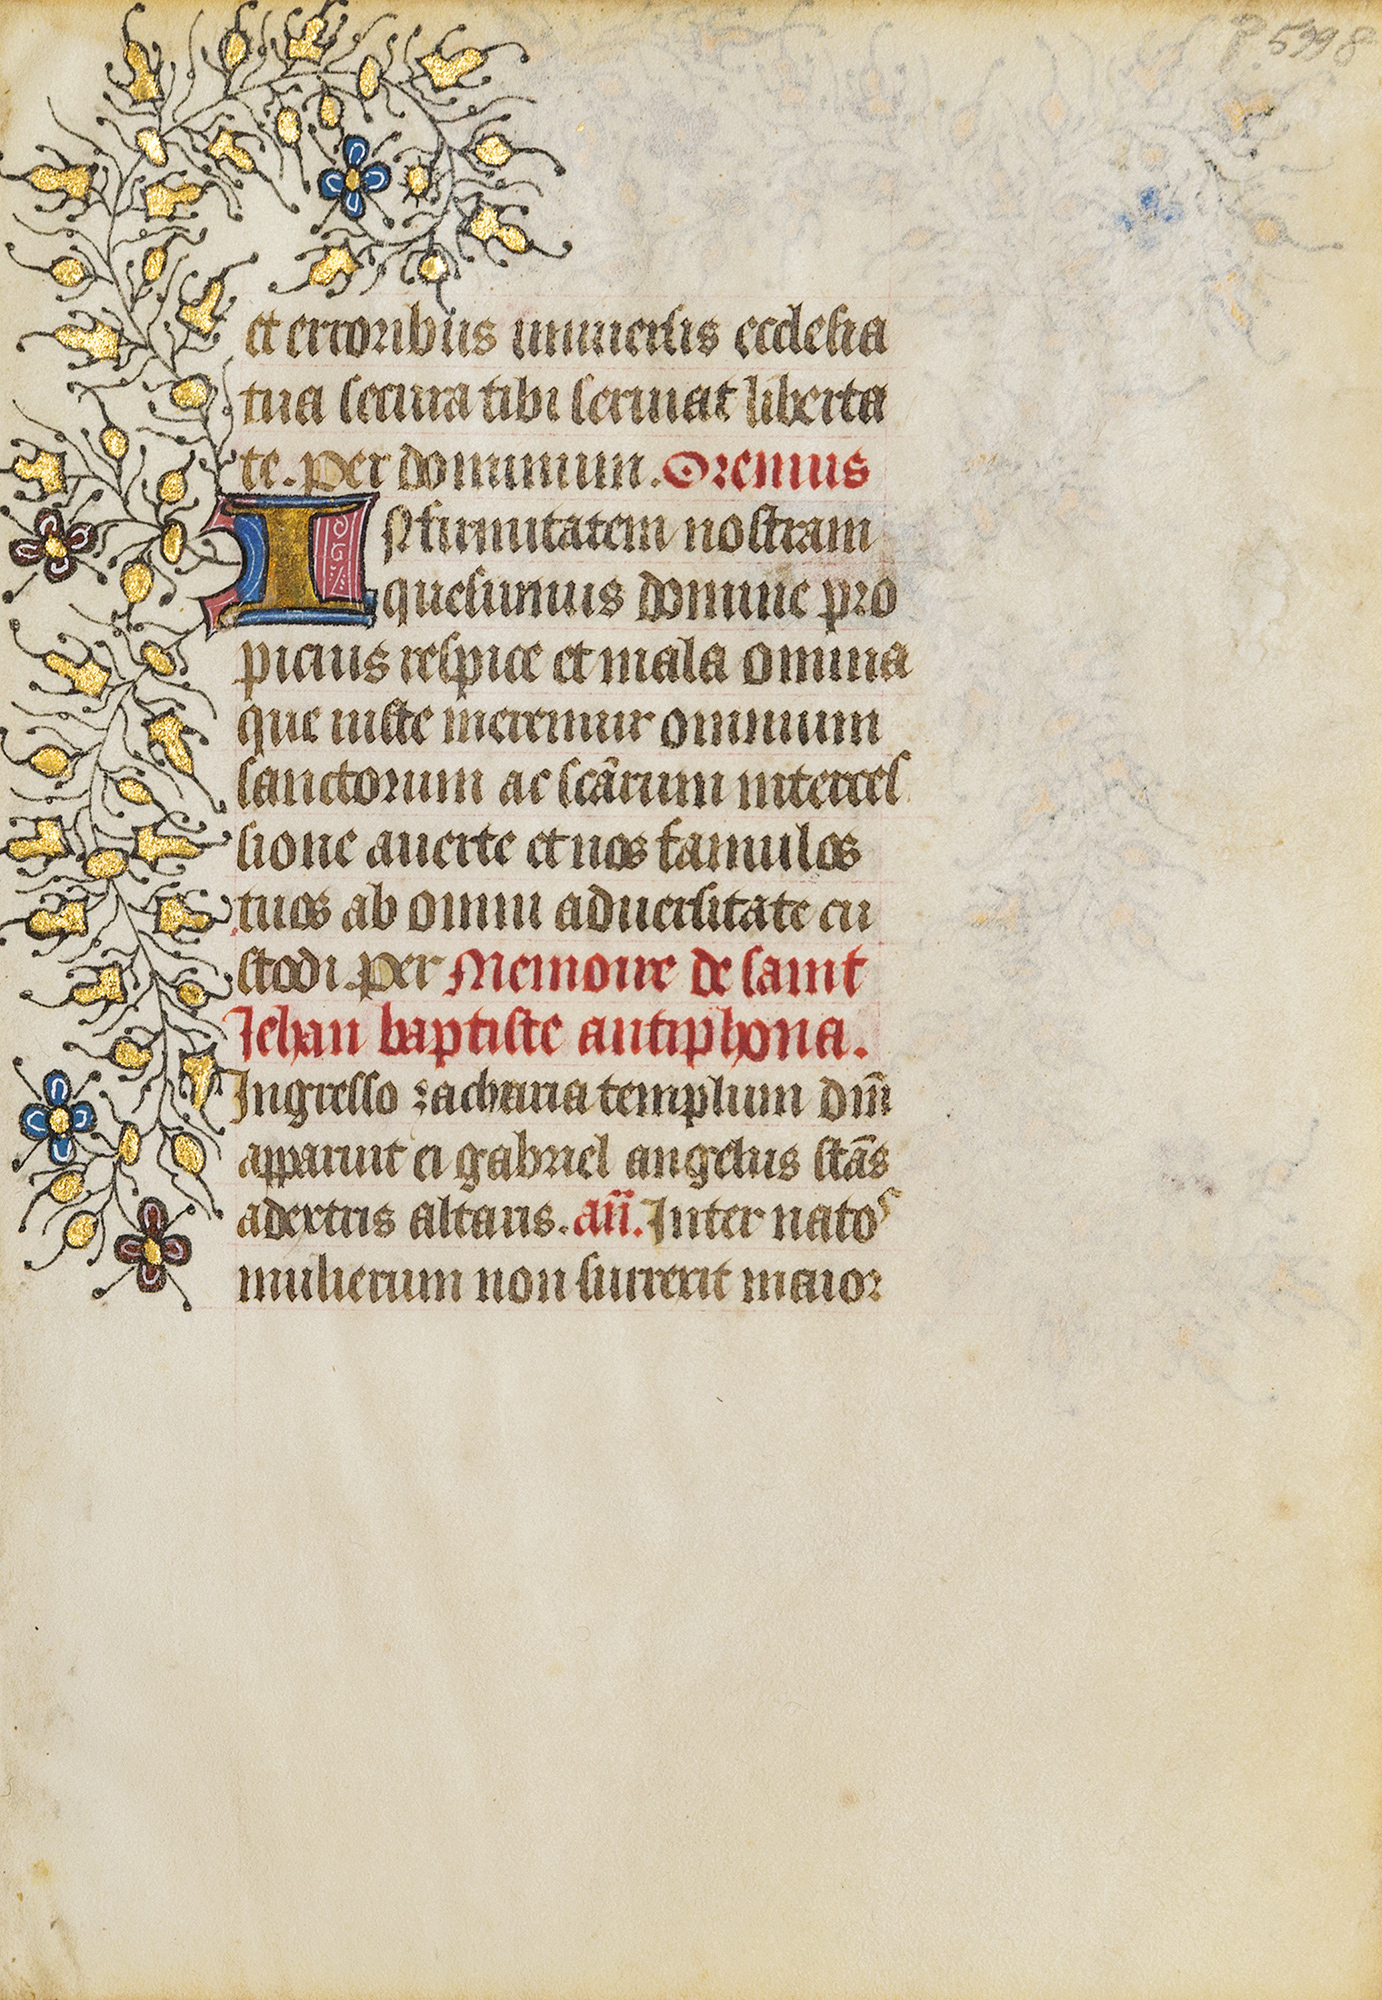 P 5998
et erroribus uniuersis ecclesia
tua secura tibi seruiat liberta
te. per dominum. Oremus
INfirmitatem nostram
quesumus domine pro
picius respice et mala omnia
que iuste meremur omnium
sanctorum ac scārum interces
sione auerte et nos famulos
tuos ab omni aduersitate cu
stodi. per Memoire de saint
Jehan baptiste antiphona.
Ingresso zacharia templum dnī
apparuit ei gabriel angelus stās
adextris altaris. añ. Inter natoꝝ
mulierum non surrexit maior